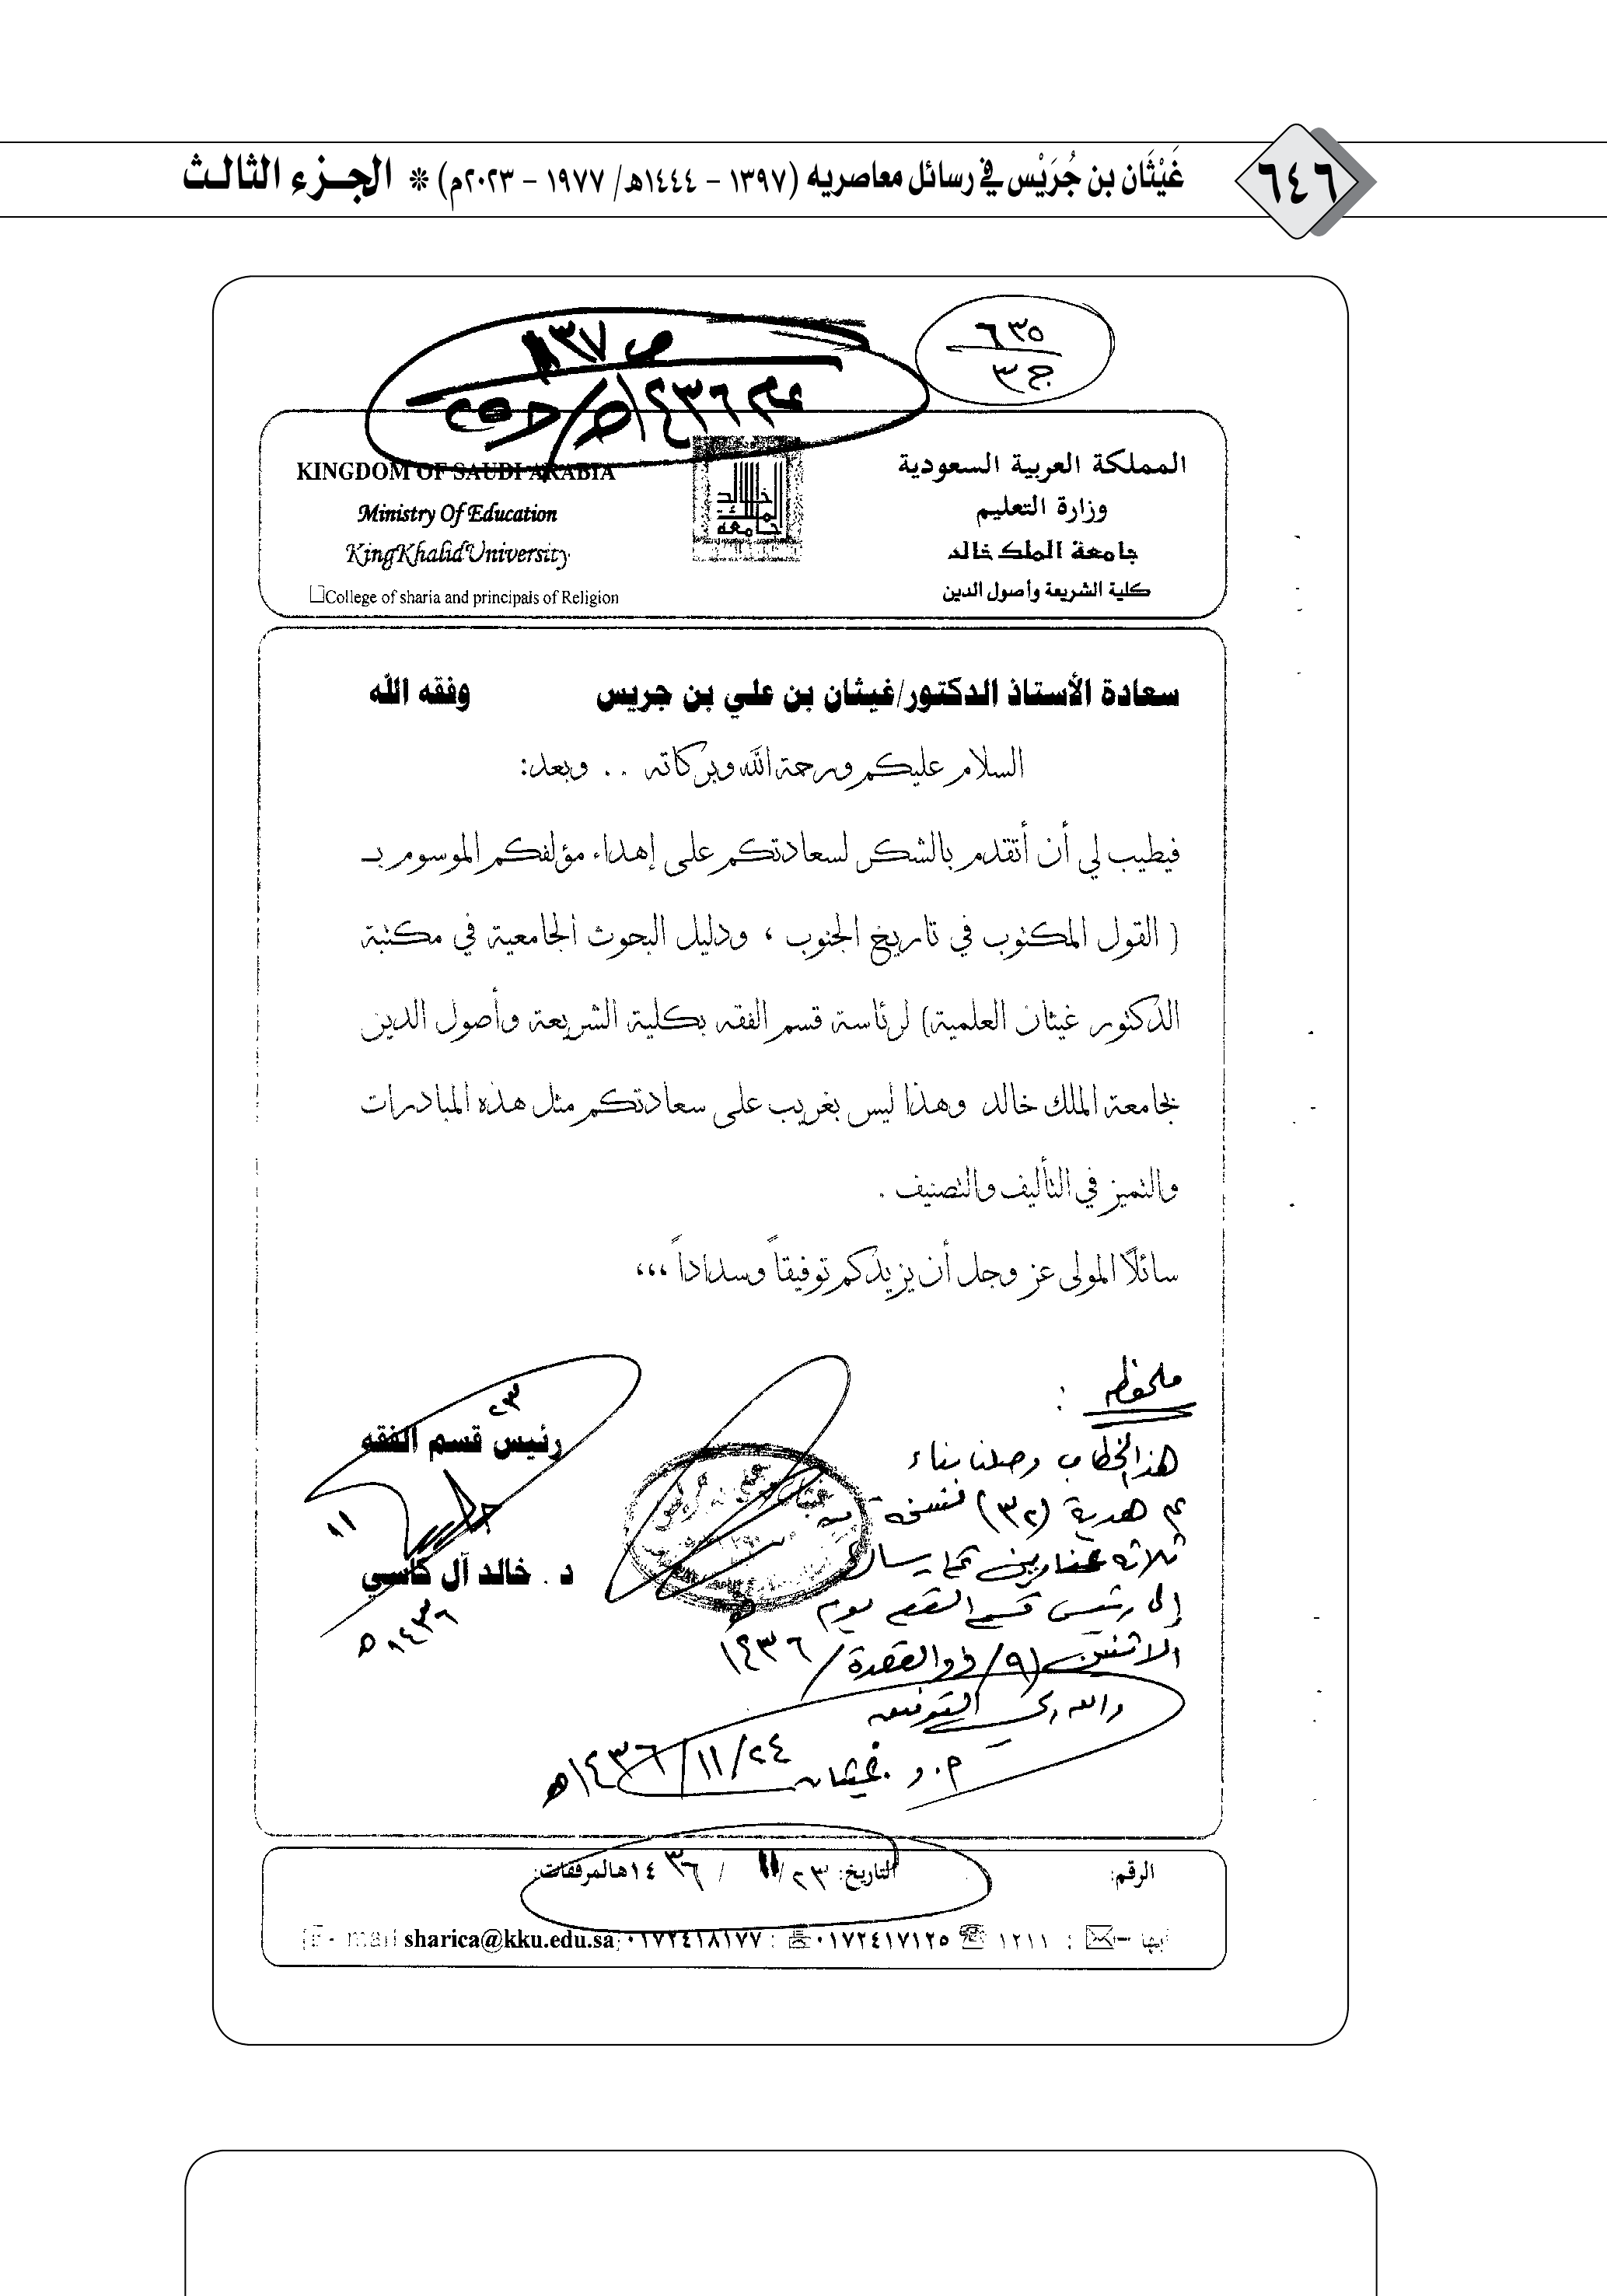 ٦٤٦
غَيْثَان بن جُرَيْس في رسائل معاصريه (١٣٩٧ - ١٤٤٤هـ/ ١٩٧٧ - ٢٠٢٣م) * الجزء الثالث
٦٣٥
ج ٣
ص ٨٣٧
عام ١٤٣٦هـ/
المملكة العربية السعودية
وزارة التعليم
جامعة الملك خالد
كلية الشريعة وأصول الدين
جامعة الملك خالد
KINGDOM OF SAUDI ARABIA
Ministry Of Education
King Khalid University
College of sharia and principals of Religion
سعادة الأستاذ الدكتور/غيثان بن علي بن جريس وفقه الله
السلام عليكم ورحمة الله وبركاته .. وبعد:
فيطيب لي أن أتقدم بالشكر لسعادتكم على إهداء مؤلفكم الموسوم بـ
( القول المكتوب في تاريخ الجنوب ، ودليل البحوث الجامعية في مكتبة
الدكتور غيثان العلمية) لرئاسة قسم الفقه بكلية الشريعة وأصول الدين
بجامعة الملك خالد وهذا ليس بغريب على سعادتكم مثل هذه المبادرات
والتميز في التأليف والتصنيف .
سائلًا المولى عز وجل أن يزيدكم توفيقاً وسداداً ،،،
رئيس قسم الفقه
٢٣
١١
د . خالد آل كاسي
١٤٣٦هـ
ملحوظة :
هذا الخطاب وصلنا بناء
هدية (٣٢) نسخة
ثلاثة عناوين
إلى رئيس قسم الفقه يوم
الاثنين (٩/ ذو القعدة/ ١٤٣٦
والله ولي التوفيق
غيثان ٢٤/١١/١٤٣٦هـ
الرقم: التاريخ: ٢٣/ ١١ / ١٤٣٦هـ المرفقات:
أبها – : ١٢١١ ٠١٧٢٤١٧١٢٥ : ٠١٧٢٤١٨١٧٧ E - mail sharica@kku.edu.sa